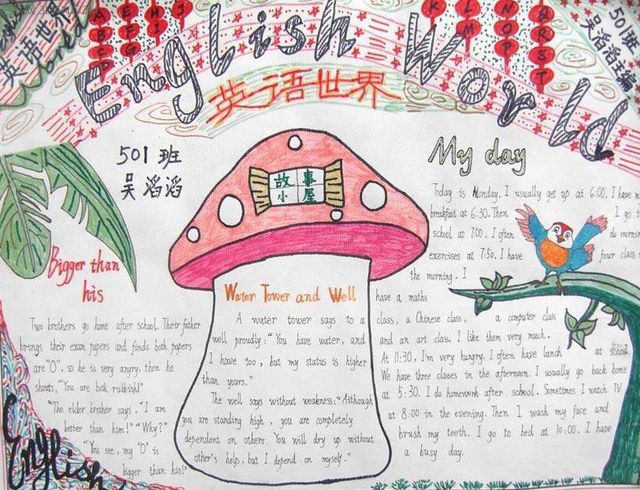 英语世界
English World
A
B
C
E
F
G
H
I
J
K
L
M
N
O
P
Q
R
S
T
501班
吴滔滔主编
英语世界
501班
吴滔滔
故事
小屋
Bigger than
his
Two brothers go home after school. Their father
brings their exam papers and finds both papers
are "0", so he is very angry. then he
shouts, "You are both rubbish!"
"The elder brother says. "I am
better than him!" "Why?"
"You see, my "0" is
bigger than his!"
English
Water Tower and Well
A water tower says to a
well proudly: "You have water, and
I have too, but my status is higher
than yours."
The well says without weakness: "Although
you are standing high, you are completely
dependent on others. You will dry up without
other's help, but I depend on myself."
My day
Today is Monday. I usually get up at 6:00. I have
breakfast at 6:30. Then I go to
school at 7:00. I often do morning
exercises at 7:50. I have four class
the morning. I
have a maths
class, a Chinese class, a computer class
and an art class. I like them very much.
At 11:30, I'm very hungry. I often have lunch at
We have three classes in the afternoon. I usually go back home
at 5:30. I do homework after school. Sometimes I watch TV
at 8:00 in the evening. Then I wash my face and
brush my teeth. I go to bed at 10:00. I have
a busy day.